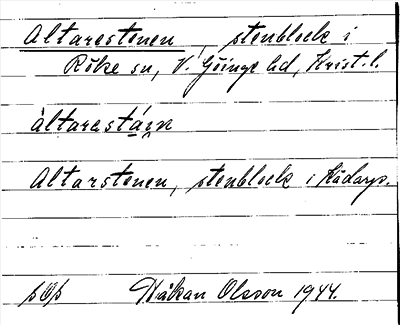 Altarestenen, stenblock i
Röke sn, V. Göinge hd, Krist. l.
àltarestá̱i̯n
Altarstenen, stenblock i Kådarp.
pOp Håkan Olsson 1944.